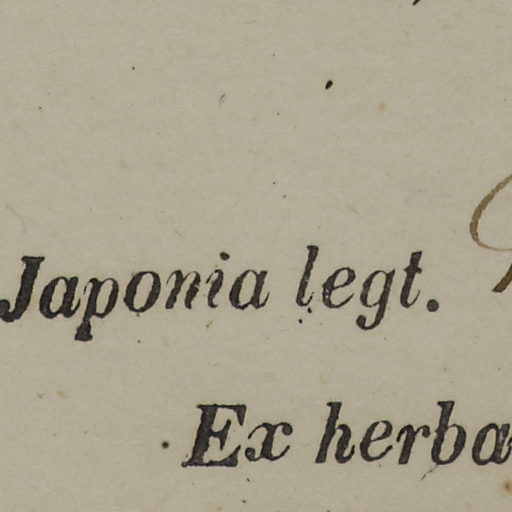 Japonia legt.
Ex herba